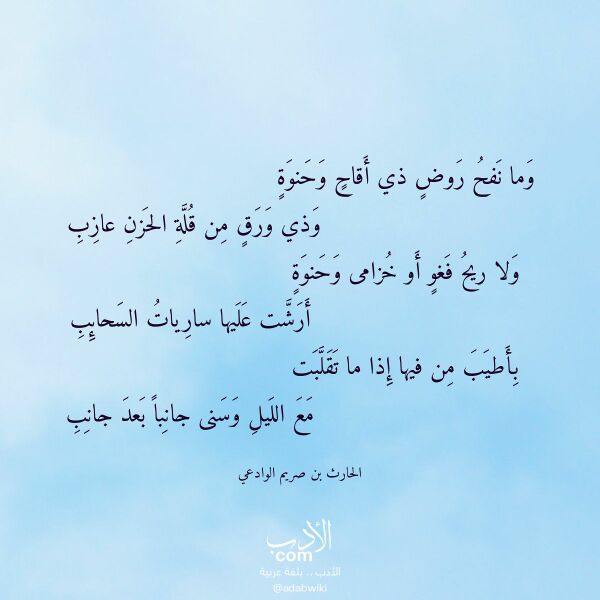 وَما نَفحُ رَوضٍ ذي أَقاحٍ وَحَنوَةٍ
وَذي وَرَقٍ مِن قُلَّةِ الحَزنِ عازِبِ
وَلا ريحُ فَغوٍ أَو خُزامى وَحَنوَةٍ
أَرَشَّت عَلَيها سارِياتُ السَحائِبِ
بِأَطيَبَ مِن فيها إِذا ما تَقَلَّبَت
مَعَ اللَيلِ وَسَنى جانِباً بَعدَ جانِبِ
الحارث بن صريم الوادعي
الأدب
.com
الأدب .. بلغة عربية
@adabwiki